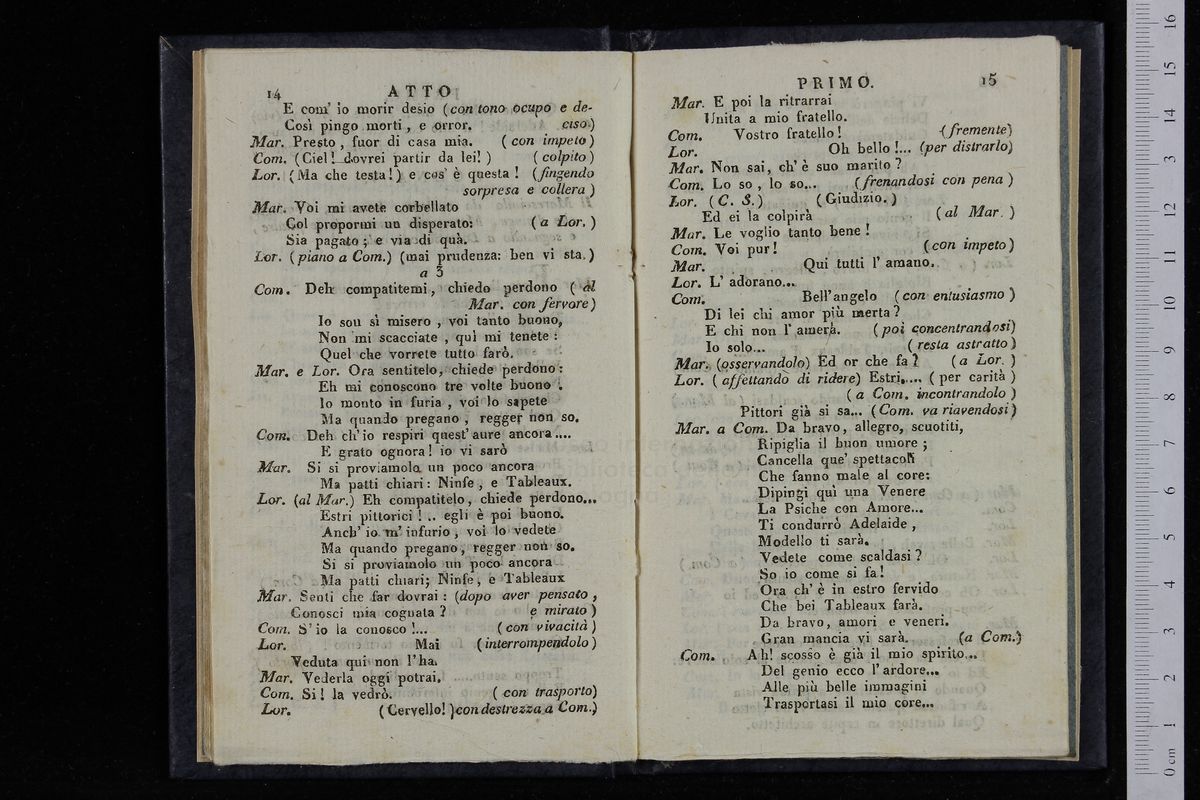 14 ATTO
E com' io morir desio (con tono ocupo e de-
Così pingo morti, e orror. ciso.)
Mar. Presto, fuor di casa mia. (con impeto)
Com. (Ciel! dovrei partir da lei!) (colpito)
Lor. (Ma che testa!) e cos' è questa! (fingendo
sorpresa e collera)
Mar. Voi mi avete corbellato
Col propormi un disperato: (a Lor.)
Sia pagato; e via di quà.
Lor. (piano a Com.) (mai prudenza: ben vi sta.)
a 3
Com. Deh compatitemi, chiedo perdono (al
Mar. con fervore)
Io son sì misero, voi tanto buono,
Non mi scacciate, quì mi tenete:
Quel che vorrete tutto farò.
Mar. e Lor. Ora sentitelo, chiede perdono:
Eh mi conoscono tre volte buono.
Io monto in furia, voi lo sapete
Ma quando pregano, regger non so.
Com. Deh ch' io respiri quest' aure ancora....
E grato ognora! io vi sarò
Mar. Si si proviamola un poco ancora
Ma patti chiari: Ninfe, e Tableaux.
Lor. (al Mar.) Eh compatitelo, chiede perdono...
Estri pittorici!.. egli è poi buono.
Anch' io m' infurio, voi lo vedete
Ma quando pregano, regger non so.
Si si proviamolo un poco ancora
Ma patti chiari; Ninfe, e Tableaux
Mar. Senti che far dovrai: (dopo aver pensato,
Conosci mia cognata? e mirato)
Com. S' io la conosco!... (con vivacità)
Lor. Mai (interrompendolo)
Veduta qui non l' ha.
Mar. Vederla oggi potrai,
Com. Si! la vedrò. (con trasporto)
Lor. (Cervello!) con destrezza a Com.)
PRIMO. 15
Mar. E poi la ritrarrai
Unita a mio fratello.
Com. Vostro fratello! (fremente)
Lor. Oh bello!... (per distrarlo)
Mar. Non sai, ch' è suo marito?
Com. Lo so, lo so... (frenandosi con pena)
Lor. (C. S.) (Giudizio.)
Ed ei la colpirà (al Mar.)
Mar. Le voglio tanto bene!
Com. Voi pur! (con impeto)
Mar. Qui tutti l' amano.
Lor. L' adorano...
Com. Bell' angelo (con entusiasmo)
Di lei chi amor più merta?
E chi non l' amerà. (poi concentrandosi)
Io solo... (resta astratto)
Mar. (osservandolo) Ed or che fa? (a Lor.)
Lor. (affettando di ridere) Estri..... (per carità)
(a Com. incontrandolo)
Pittori già si sa... (Com. va riavendosi)
Mar. a Com. Da bravo, allegro, scuotiti,
Ripiglia il buon umore;
Cancella que' spettacoli
Che fanno male al core:
Dipingi quì una Venere
La Psiche con Amore...
Ti condurrò Adelaide,
Modello ti sarà.
Vedete come scaldasi?
So io come si fa!
Ora ch' è in estro fervido
Che bei Tableaux farà.
Da bravo, amori e veneri.
Gran mancia vi sarà. (a Com.)
Com. Ah! scosso è già il mio spirito...
Del genio ecco l' ardore...
Alle più belle immagini
Trasportasi il mio core...
0 cm 1 2 3 4 5 6 7 8 9 10 11 12 13 14 15 16